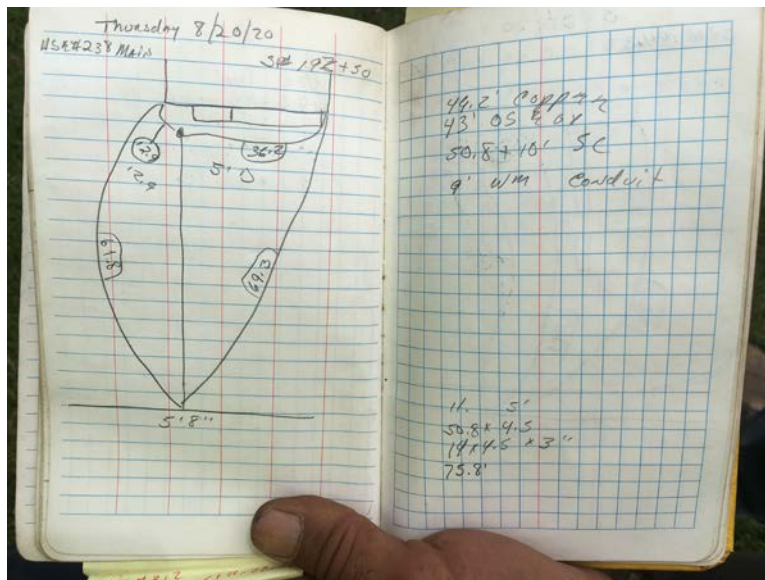 Thursday 8/20/20
HSE#238 Main
192+50
12.9
36.2
12.9
5'D
67.8
69.3
5'8"
44.2' Copper
43'
50.8+10' SC
9' WM Conduit
11. 5'
50.8x4.5
14x4.5x3"
75.8'